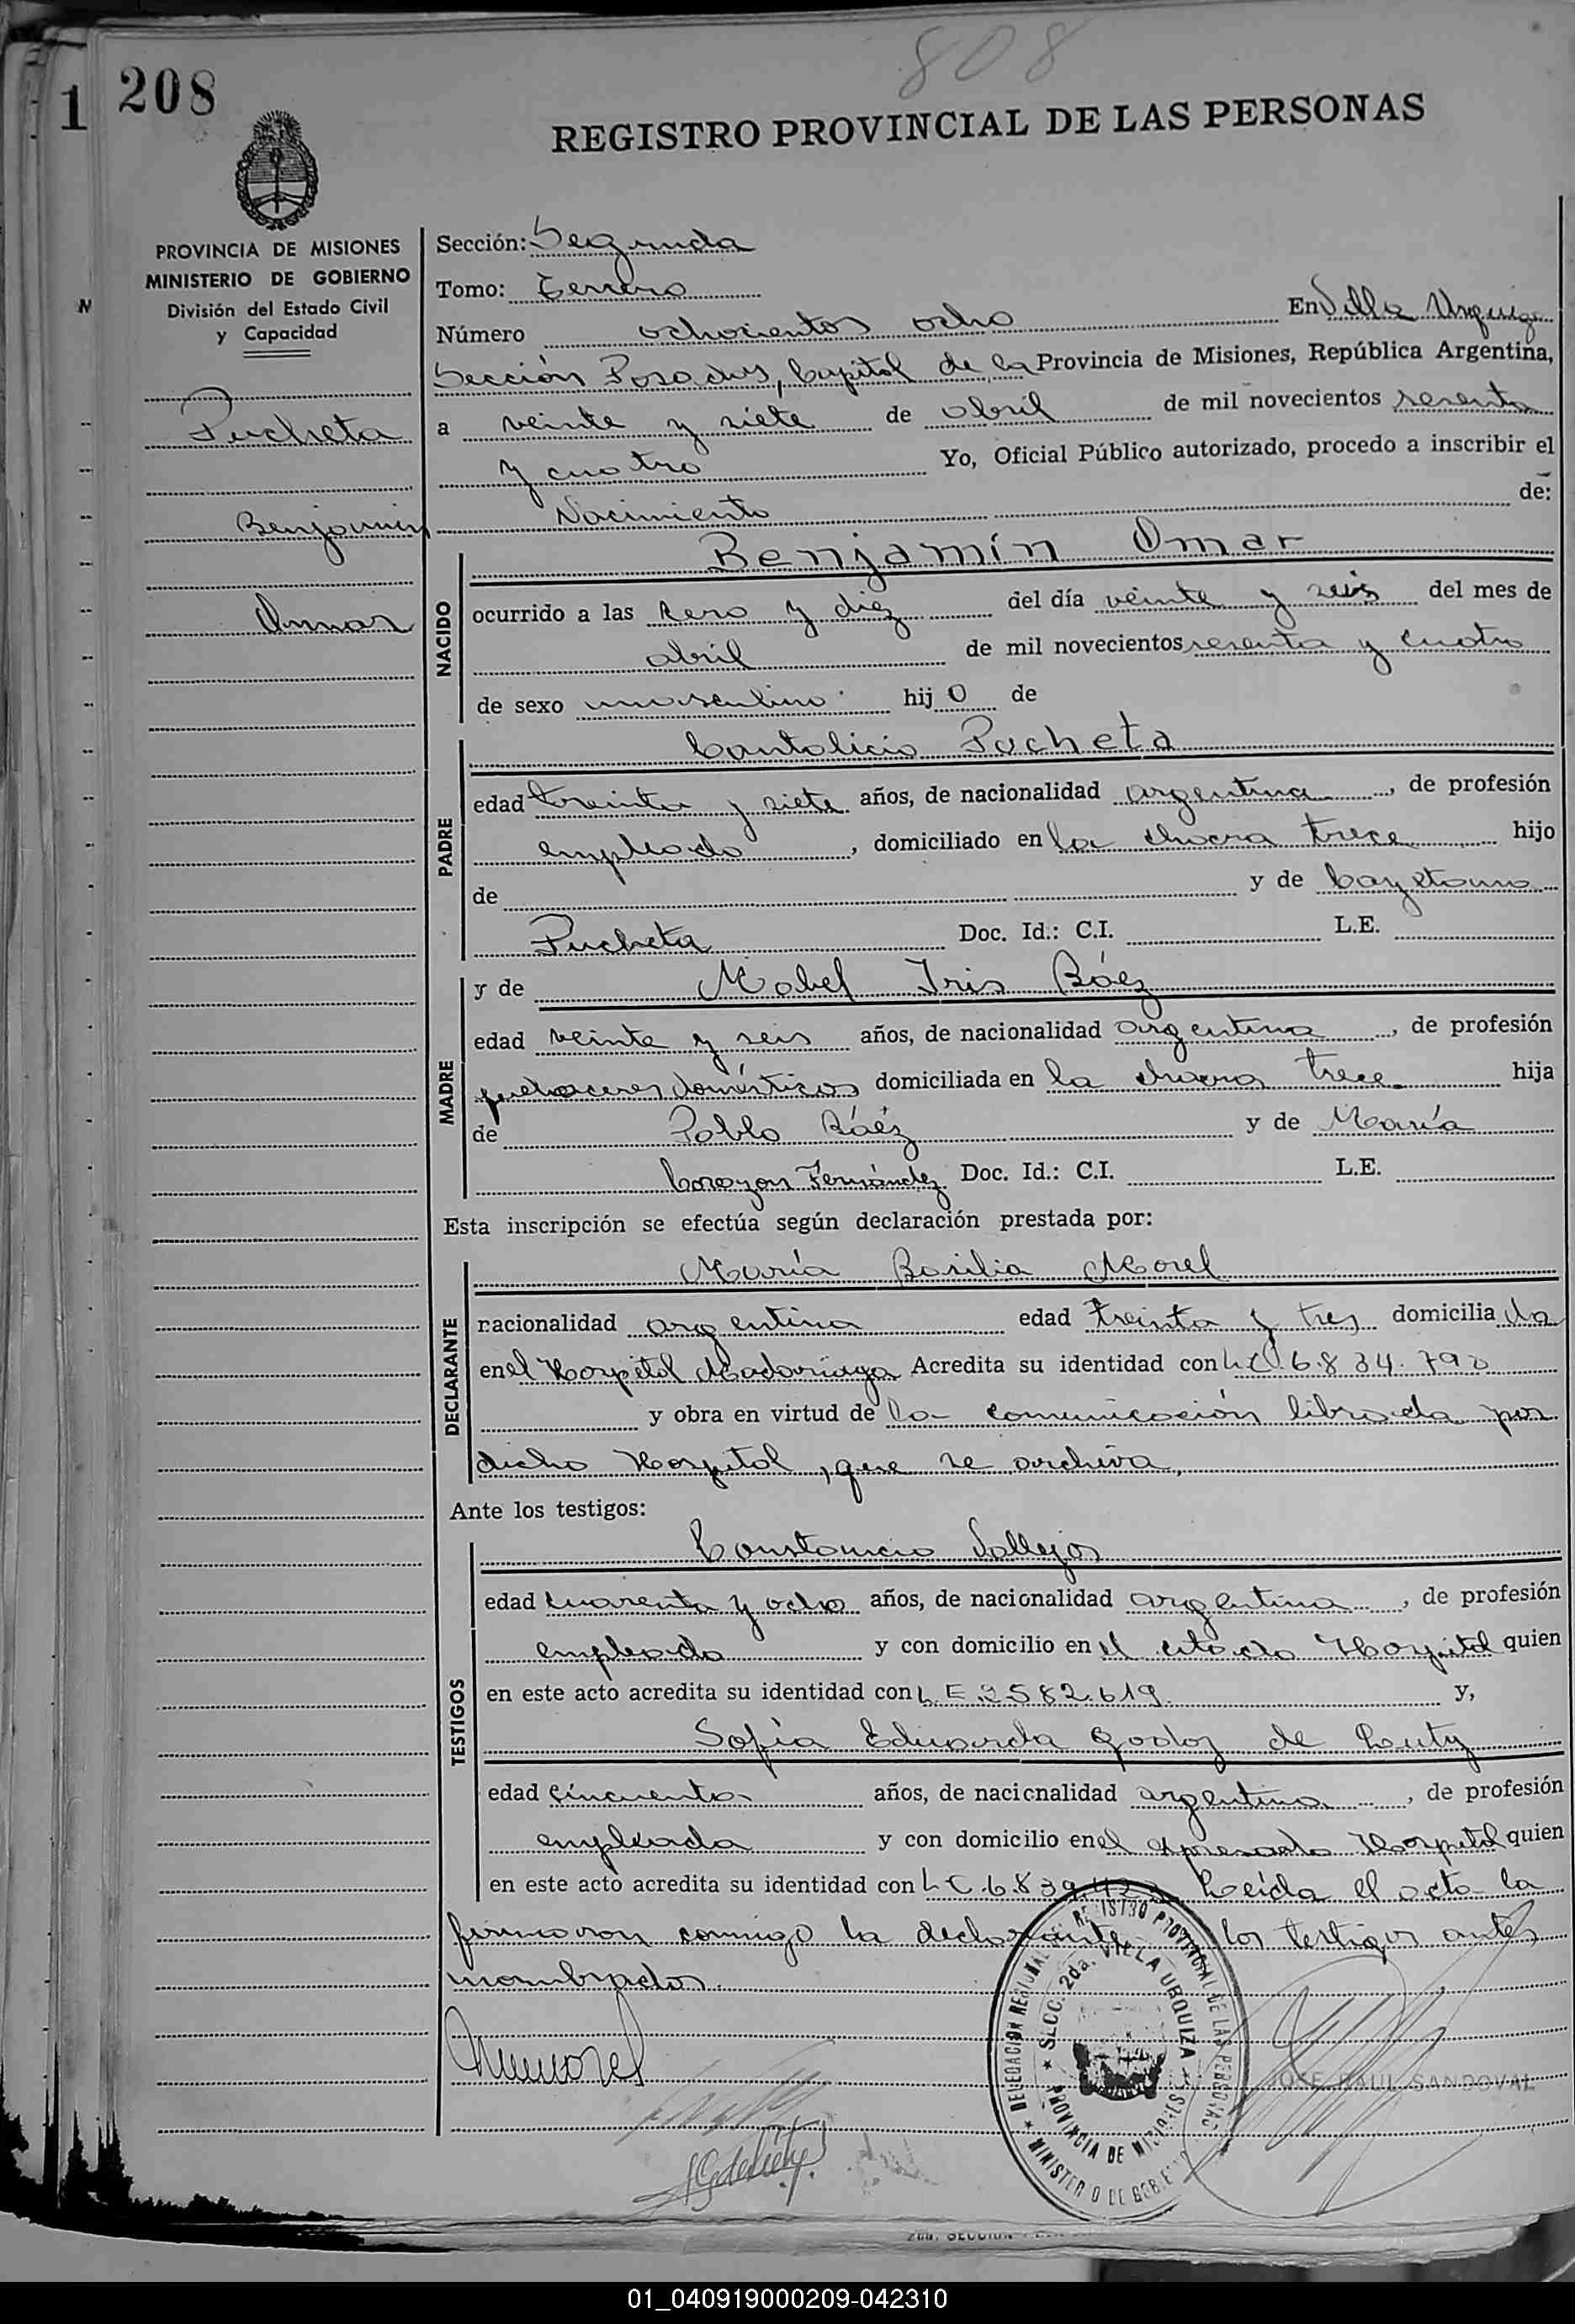 808
1 208
REGISTRO PROVINCIAL DE LAS PERSONAS
PROVINCIA DE MISIONES
MINISTERIO DE GOBIERNO
División del Estado Civil
y Capacidad
Pucheta
Benjamin
Omar
Sección: Segunda
Tomo: Tercero
Número ochocientos ocho En Villa Urquiza
Sección Posadas, Capital de la Provincia de Misiones, República Argentina,
a veinte y siete de abril de mil novecientos sesenta
y cuatro Yo, Oficial Público autorizado, procedo a inscribir el
Nacimiento de:
NACIDO
Benjamín Omar
ocurrido a las cero y diez del día veinte y seis del mes de
abril de mil novecientos sesenta y cuatro
de sexo masculino hijo de
PADRE
Cantalicio Pucheta
edad treinta y siete años, de nacionalidad argentina, de profesión
empleado, domiciliado en la chacra trece hijo
de y de Cayetana
Pucheta Doc. Id.: C.I. L.E.
MADRE
y de Mabel Iris Báez
edad veinte y seis años, de nacionalidad argentina, de profesión
quehaceres domésticos domiciliada en la chacra trece hija
de Pablo Báez y de María
Corazon Fernández Doc. Id.: C.I. L.E.
Esta inscripción se efectúa según declaración prestada por:
DECLARANTE
María Basilia Morel
nacionalidad argentina edad treinta y tres domiciliada
en el Hospital Madariaga Acredita su identidad con L.C. 6.834.790
y obra en virtud de la comunicación librada por
dicho Hospital, que se archiva,
Ante los testigos:
TESTIGOS
Constancio Vallejos
edad cuarenta y ocho años, de nacionalidad argentina, de profesión
empleado y con domicilio en el citado Hospital quien
en este acto acredita su identidad con L.E. 2582.619 y,
Sofía Eduarda Godoy de Liuty
edad cincuenta años, de nacionalidad argentina, de profesión
empleada y con domicilio en el expresado Hospital quien
en este acto acredita su identidad con L.C. 6.839 Leída el acta la
firmaron conmigo la declarante los testigos antes
nombrados.
DELEGACION REGIONAL DEL REGISTRO PROVINCIAL DE LAS PERSONAS
SECC. 2da. VILLA URQUIZA
PROVINCIA DE MISIONES
MINISTERIO DE GOBIERNO
JOSE RAUL SANDOVAL
01_040919000209-042310